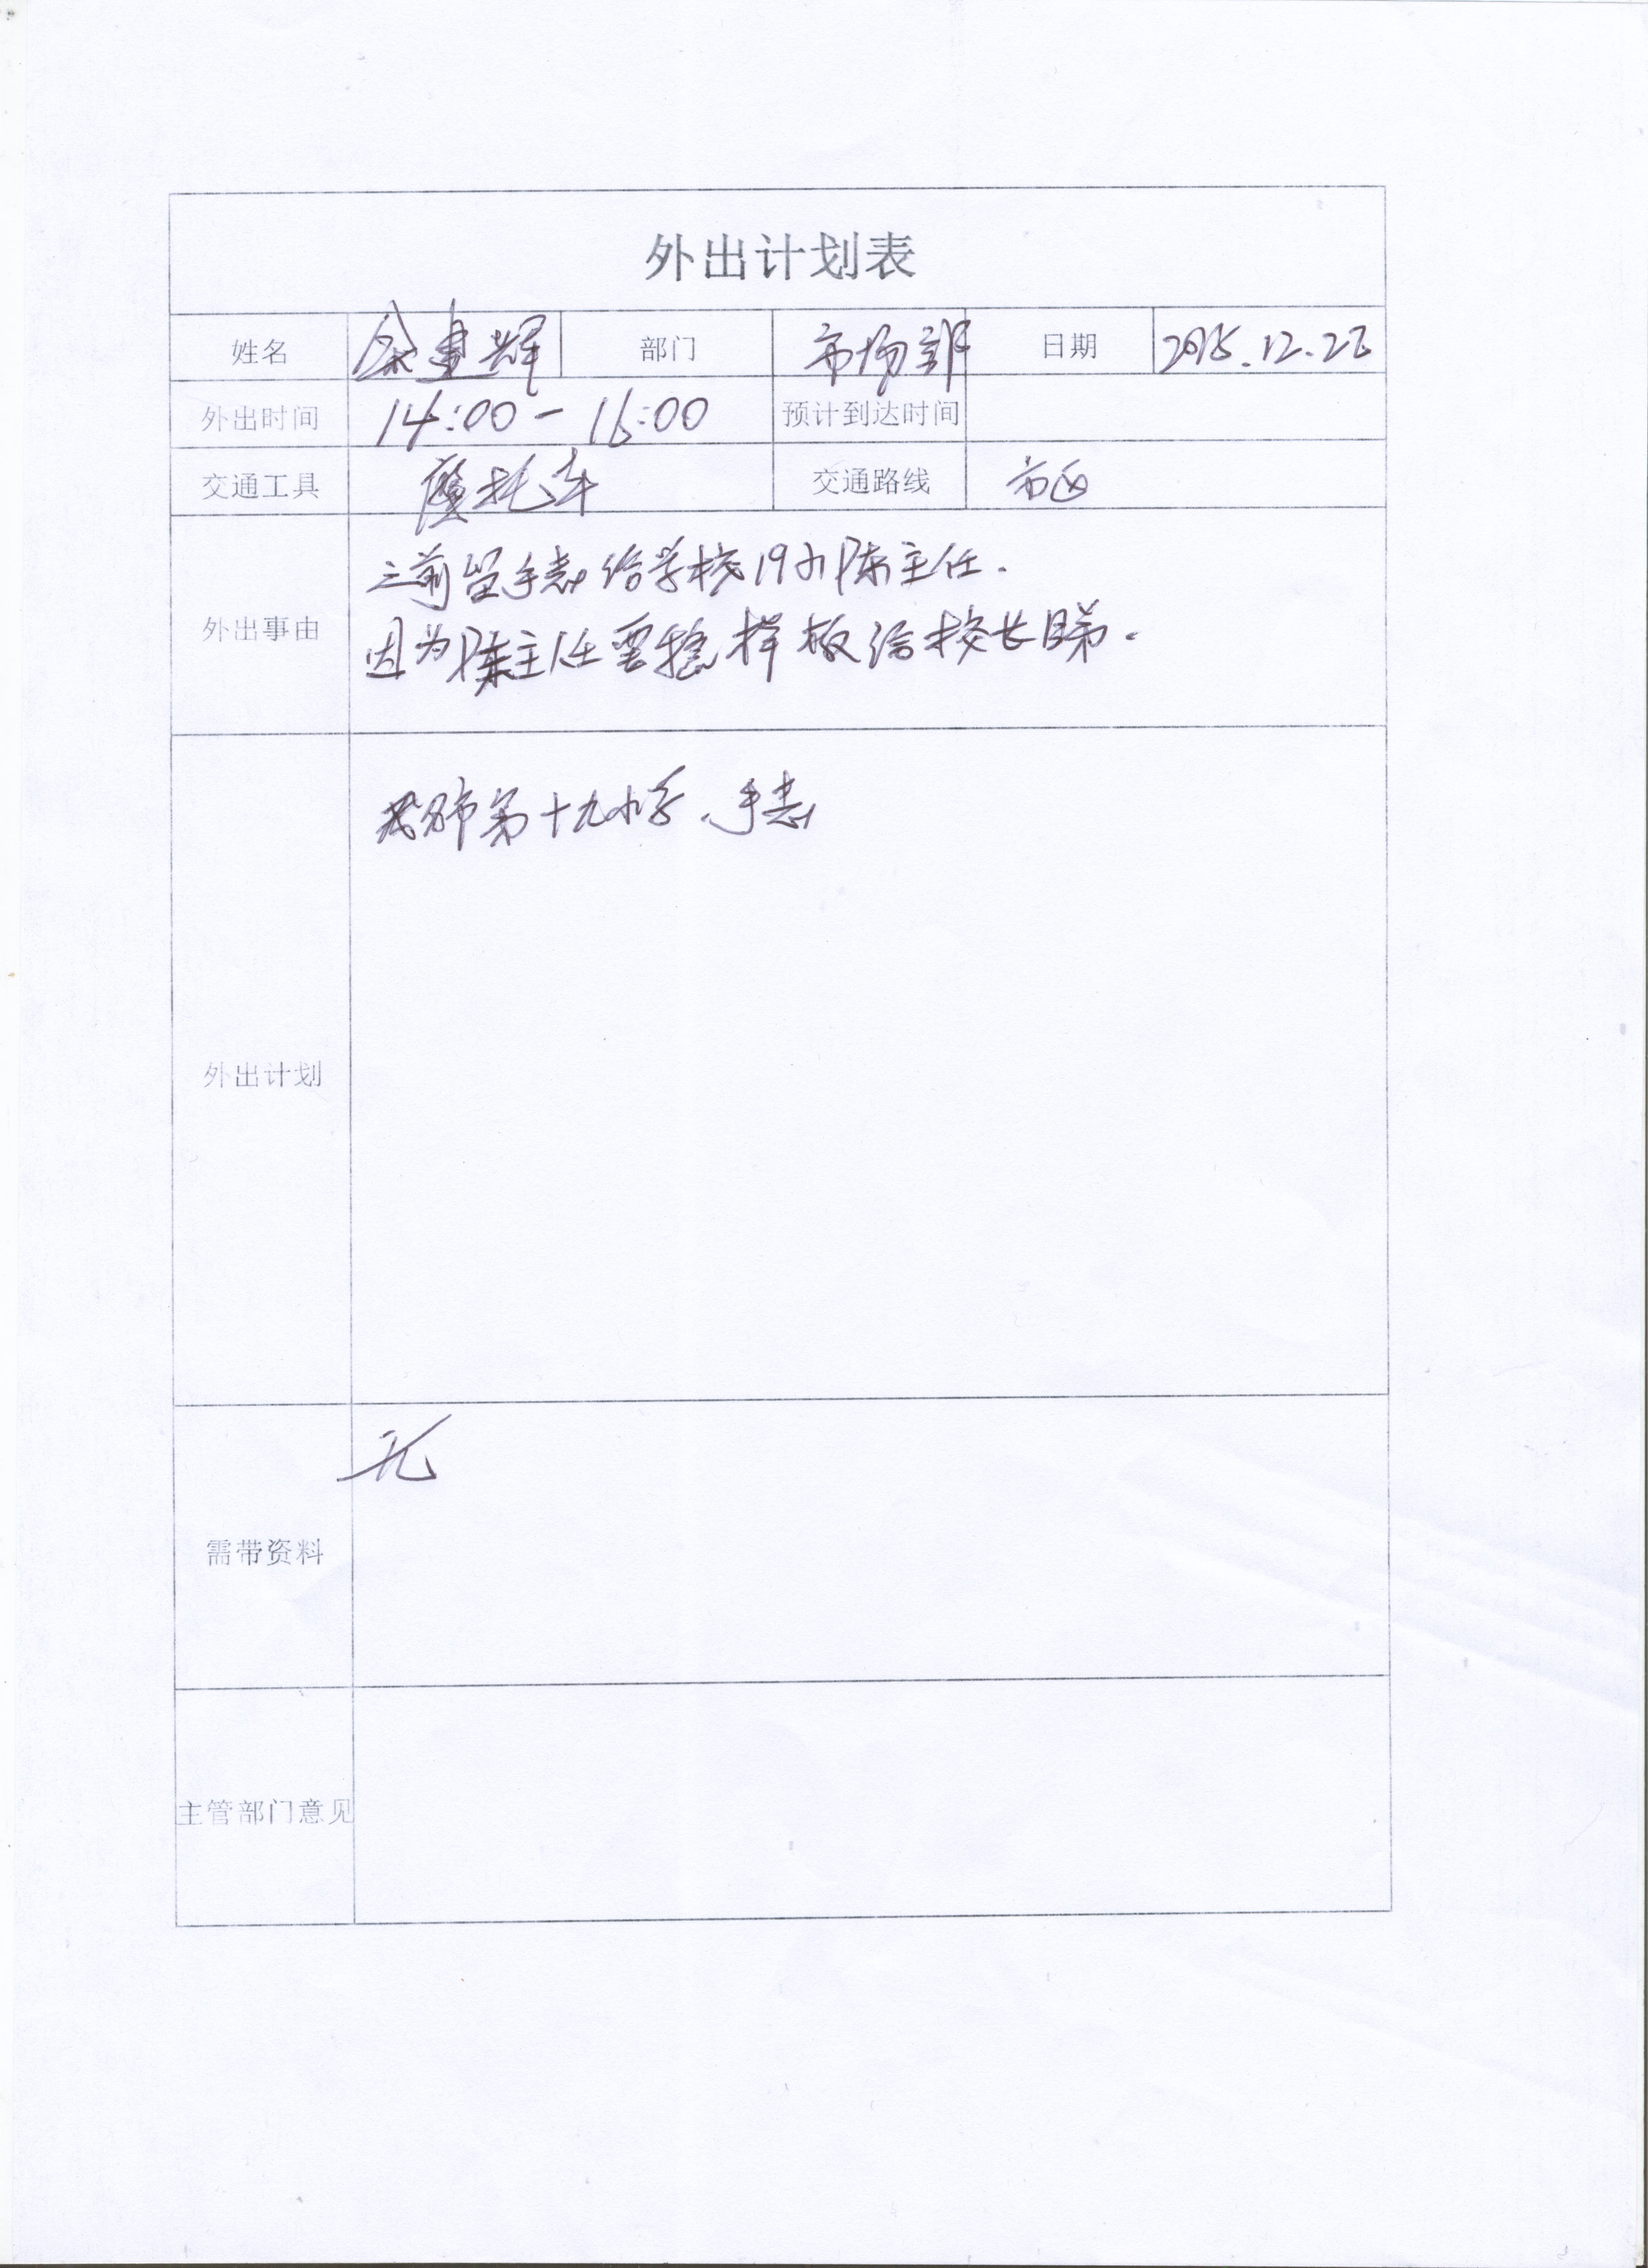 外出计划表
姓名 余建辉 部门 市场部 日期 2015.12.28
外出时间 14:00 - 16:00 预计到达时间
交通工具 摩托车 交通路线 市区
外出事由
之前留手表给学校19小陈主任.
因为陈主任要拿样板给校长睇.
外出计划
茂名市第十九小学、手表
需带资料 无
主管部门意见